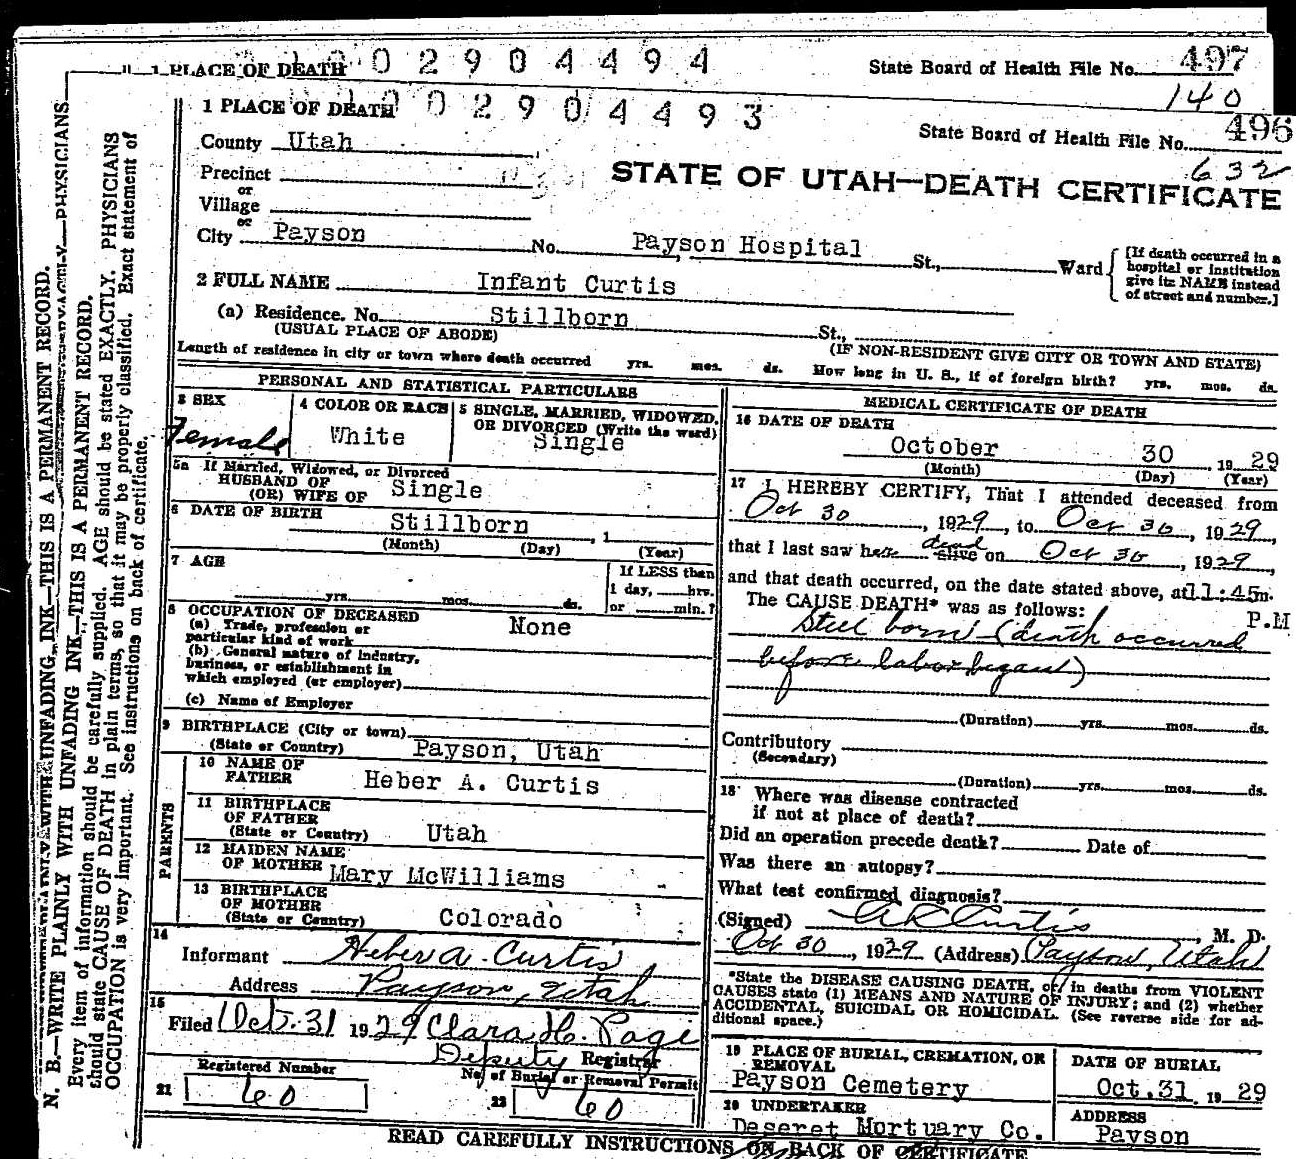 1 PLACE OF DEATH
1002904494
State Board of Health File No. 497
140
1 PLACE OF DEATH
1002904493
State Board of Health File No. 496
632
County Utah
Precinct
or
Village
or
City Payson No. Payson Hospital St., Ward
[If death occurred in a hospital or institution give its NAME instead of street and number.]
STATE OF UTAH—DEATH CERTIFICATE
2 FULL NAME Infant Curtis
(a) Residence. No. Stillborn St.,
(USUAL PLACE OF ABODE) (IF NON-RESIDENT GIVE CITY OR TOWN AND STATE)
Length of residence in city or town where death occurred yrs. mos. ds. How long in U. S., if of foreign birth? yrs. mos. ds.
PERSONAL AND STATISTICAL PARTICULARS
3 SEX
Female
4 COLOR OR RACE
White
5 SINGLE, MARRIED, WIDOWED,
OR DIVORCED (Write the word)
Single
5a If Married, Widowed, or Divorced
HUSBAND OF
(OR) WIFE OF Single
6 DATE OF BIRTH Stillborn , 1
(Month) (Day) (Year)
7 AGE
yrs. mos. ds.
If LESS than
1 day, hrs.
or min.?
8 OCCUPATION OF DECEASED
(a) Trade, profession or
particular kind of work None
(b) General nature of industry,
business, or establishment in
which employed (or employer)
(c) Name of Employer
9 BIRTHPLACE (City or town)
(State or Country) Payson, Utah
PARENTS
10 NAME OF
FATHER Heber A. Curtis
11 BIRTHPLACE
OF FATHER
(State or Country) Utah
12 MAIDEN NAME
OF MOTHER Mary McWilliams
13 BIRTHPLACE
OF MOTHER
(State or Country) Colorado
14
Informant Heber A. Curtis
Address Payson, Utah
15
Filed Oct. 31 1929 Clara H. Page
Deputy Registrar
Registered Number
21 60
No. of Burial or Removal Permit
22 60
MEDICAL CERTIFICATE OF DEATH
16 DATE OF DEATH
October 30 , 1929
(Month) (Day) (Year)
17 I HEREBY CERTIFY, That I attended deceased from
Oct 30, 1929, to Oct 30, 1929,
that I last saw her dead alive on Oct 30, 1929,
and that death occurred, on the date stated above, at 11:45 m.
P.M
The CAUSE DEATH* was as follows:
Still born (death occurred
before labor began)
(Duration) yrs. mos. ds.
Contributory
(Secondary)
(Duration) yrs. mos. ds.
18 Where was disease contracted
if not at place of death?
Did an operation precede death? Date of
Was there an autopsy?
What test confirmed diagnosis?
(Signed) A R Curtis, M. D.
Oct 30, 1929 (Address) Payson, Utah
*State the DISEASE CAUSING DEATH, or in deaths from VIOLENT
CAUSES state (1) MEANS AND NATURE OF INJURY; and (2) whether
ACCIDENTAL, SUICIDAL OR HOMICIDAL. (See reverse side for ad-
ditional space.)
19 PLACE OF BURIAL, CREMATION, OR
REMOVAL
Payson Cemetery
DATE OF BURIAL
Oct.31, 1929
20 UNDERTAKER
Deseret Mortuary Co.
ADDRESS
Payson
READ CAREFULLY INSTRUCTIONS ON BACK OF CERTIFICATE
N. B.—WRITE PLAINLY WITH UNFADING INK—THIS IS A PERMANENT RECORD.
Every item of information should be carefully supplied. AGE should be stated EXACTLY. PHYSICIANS
should state CAUSE OF DEATH in plain terms, so that it may be properly classified. Exact statement of
OCCUPATION is very important. See instructions on back of certificate.